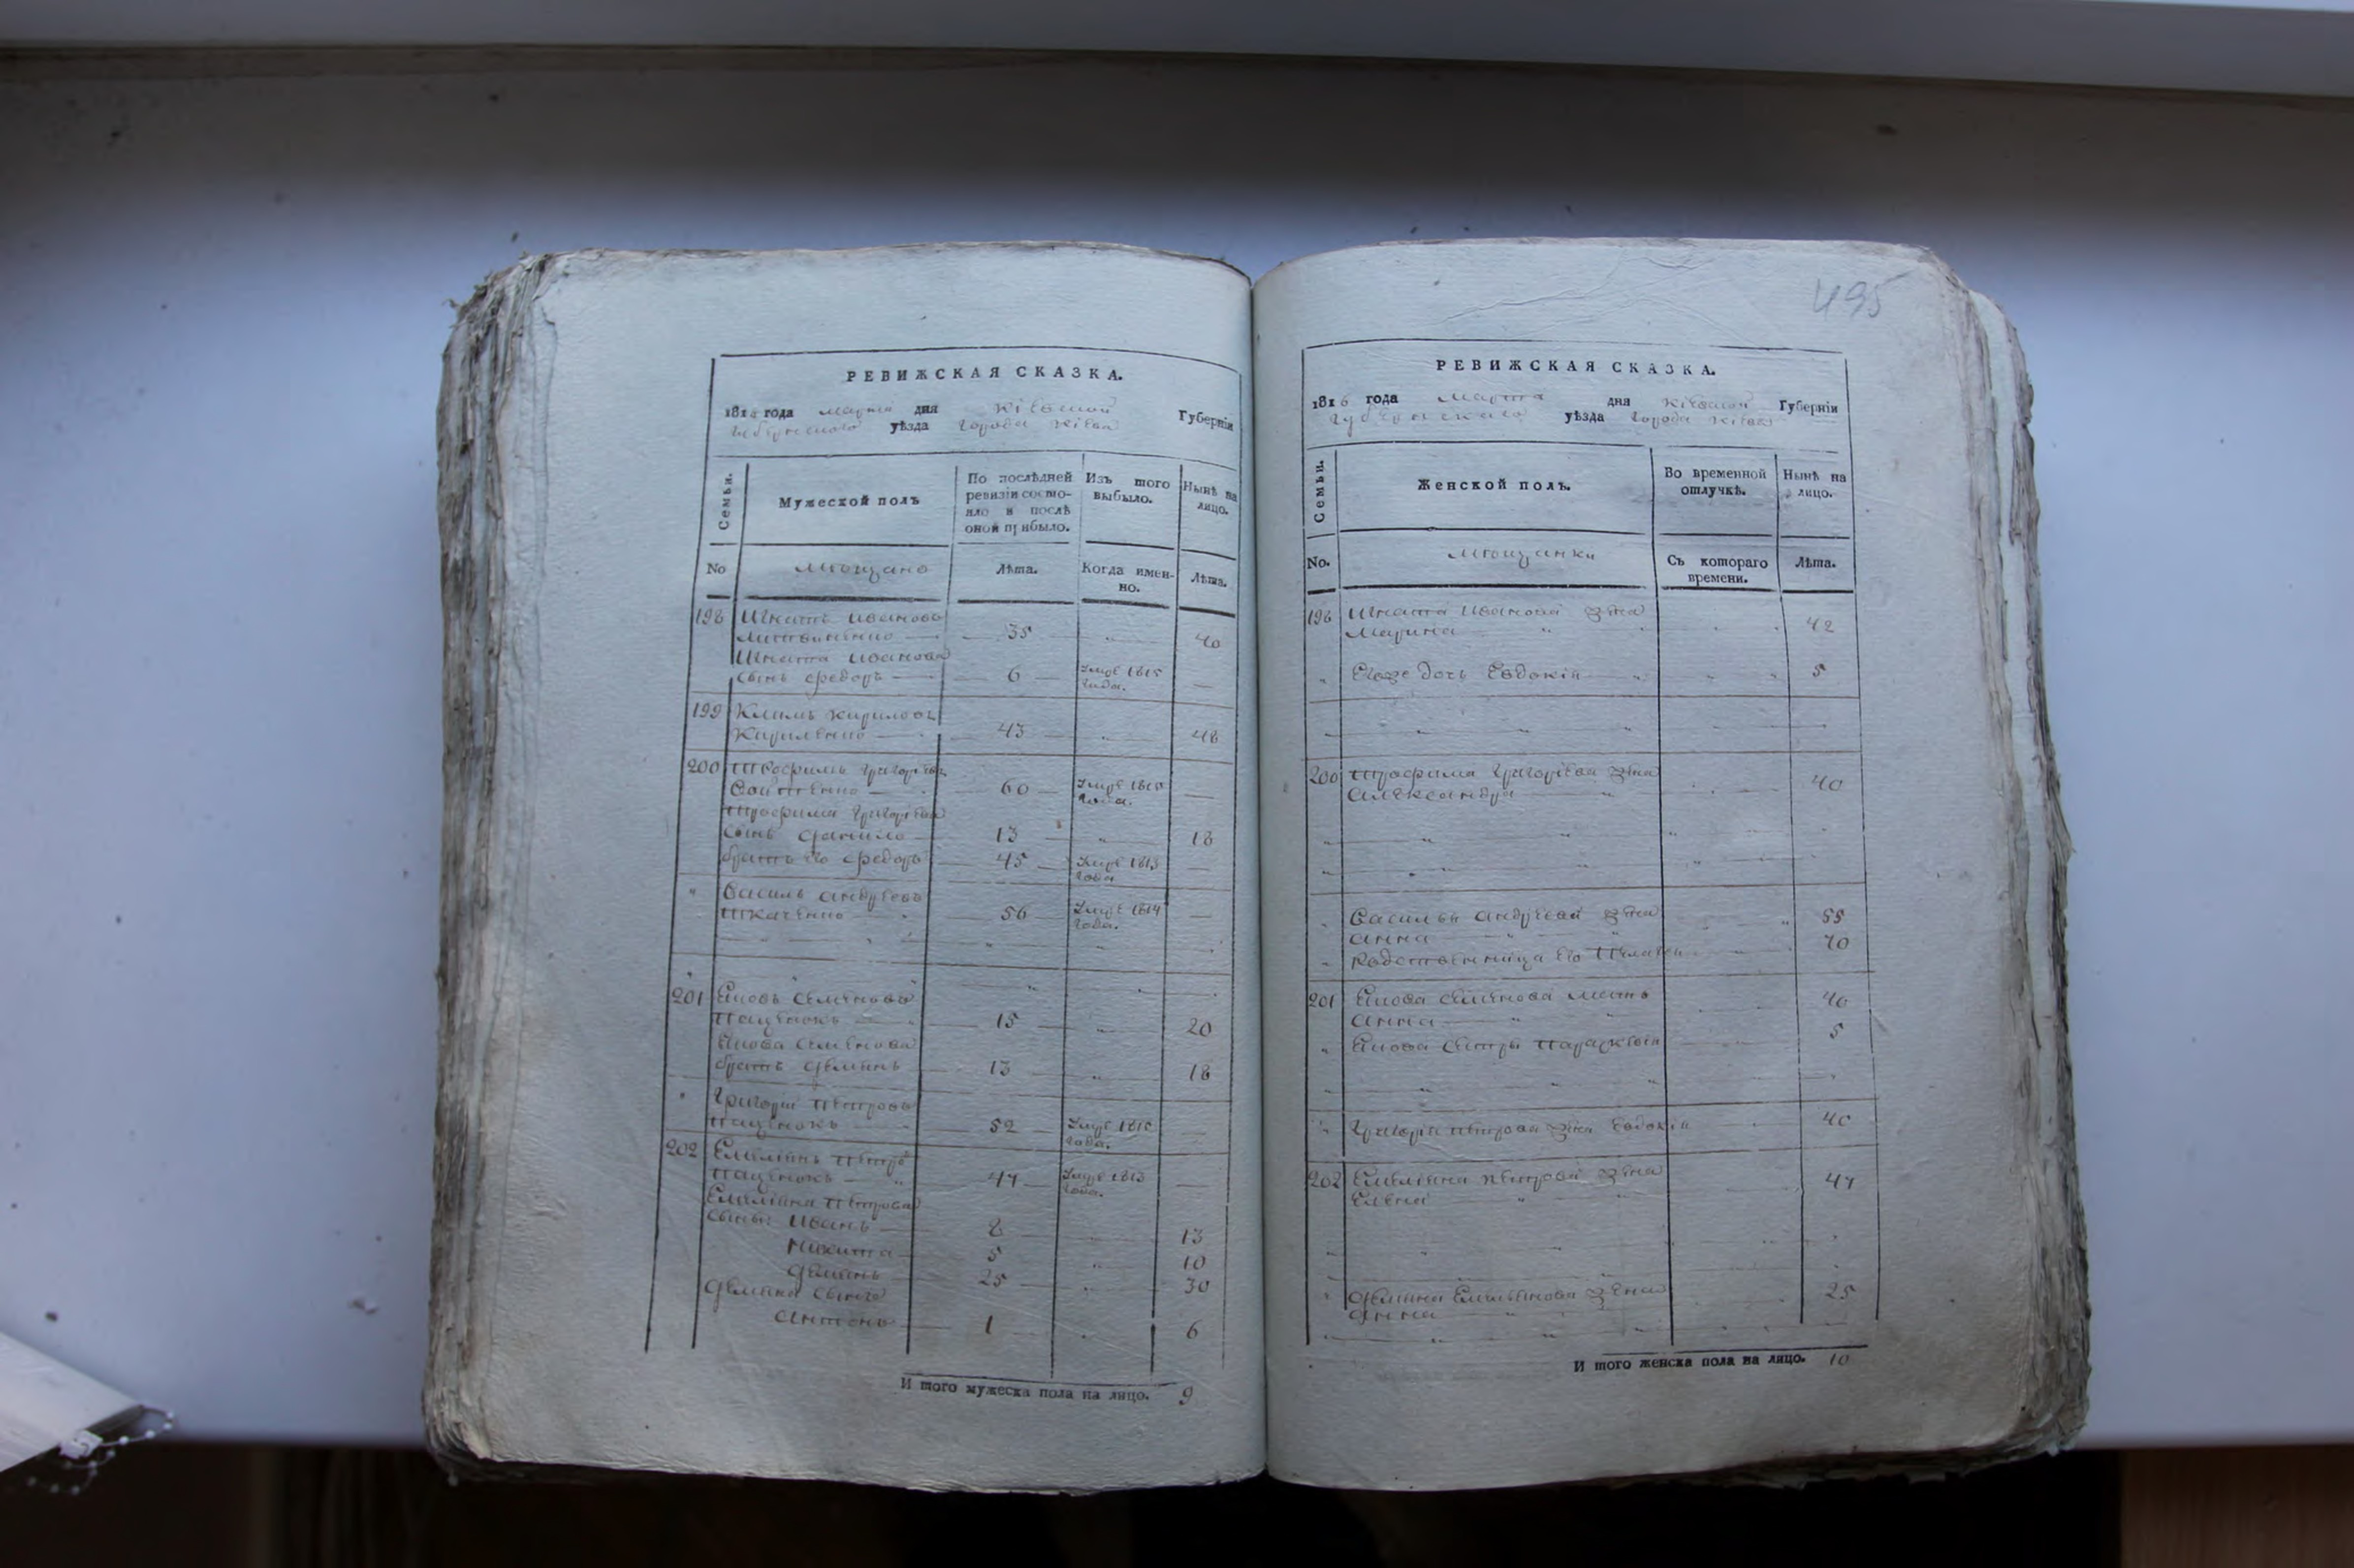 495
РЕВИЖСКАЯ СКАЗКА.
1816 года марта дня Кіевской Губерніи
Губернского уѣзда города Кіева
Семьи.
Мужеской полъ
По послѣдней ревизіи состояло и послѣ оной прибыло.
Изъ того выбыло.
Нынѣ на лицо.
No мещане Лѣта. Когда именно. Лѣта.
198 Игнатъ Ивановъ
Литвиненко 35 40
Игната Иванова
сынъ Федоръ 6 Умре 1815 года.
199 Климъ Кириловъ
Кириленко 43 48
200 Трофимъ Григорьевъ
60 Умре 1815 года.
Трофима Григорьева
сынъ Данило 13 18
братъ его Федоръ 45 Умре 1813 года
Василь Андреевъ
Ткаченко 56 Умре 1814 года.
201 Яковъ Семеновъ
Паценокъ 15 20
Якова Семенова
братъ Демянъ 13 18
Григорій Петровъ
Паценокъ 52 Умре 1815 года.
202 Емельянъ Петро
Паценокъ 47 Умре 1813 года.
Емельяна Петрова
сыны: Иванъ 8 13
Никита 5 10
Демянъ 25 30
Демяна сынъ
Антонъ 1 6
И того мужеска пола на лицо. 9
РЕВИЖСКАЯ СКАЗКА.
1816 года Марта дня Кіевской Губерніи
Губернского уѣзда города Кіева
Семьи.
Женской полъ.
Во временной отлучкѣ.
Нынѣ на лицо.
No. мещанки Съ котораго времени. Лѣта.
198 Игната Иванова жена
Марина 42
Егоже дочь Евдокія 5
200 Трофима Григорьева жена
Александра 40
Василья Андреева жена 55
Анна
Родственница его 70
201 Якова Семенова мать 46
Анна
Якова сестра Параскевія 5
Григорія Петрова жена Евдокія 40
202 Емельяна Петрова жена 47
Елена
Демяна Емельянова жена 25
Анна
И того женска пола на лицо. 10